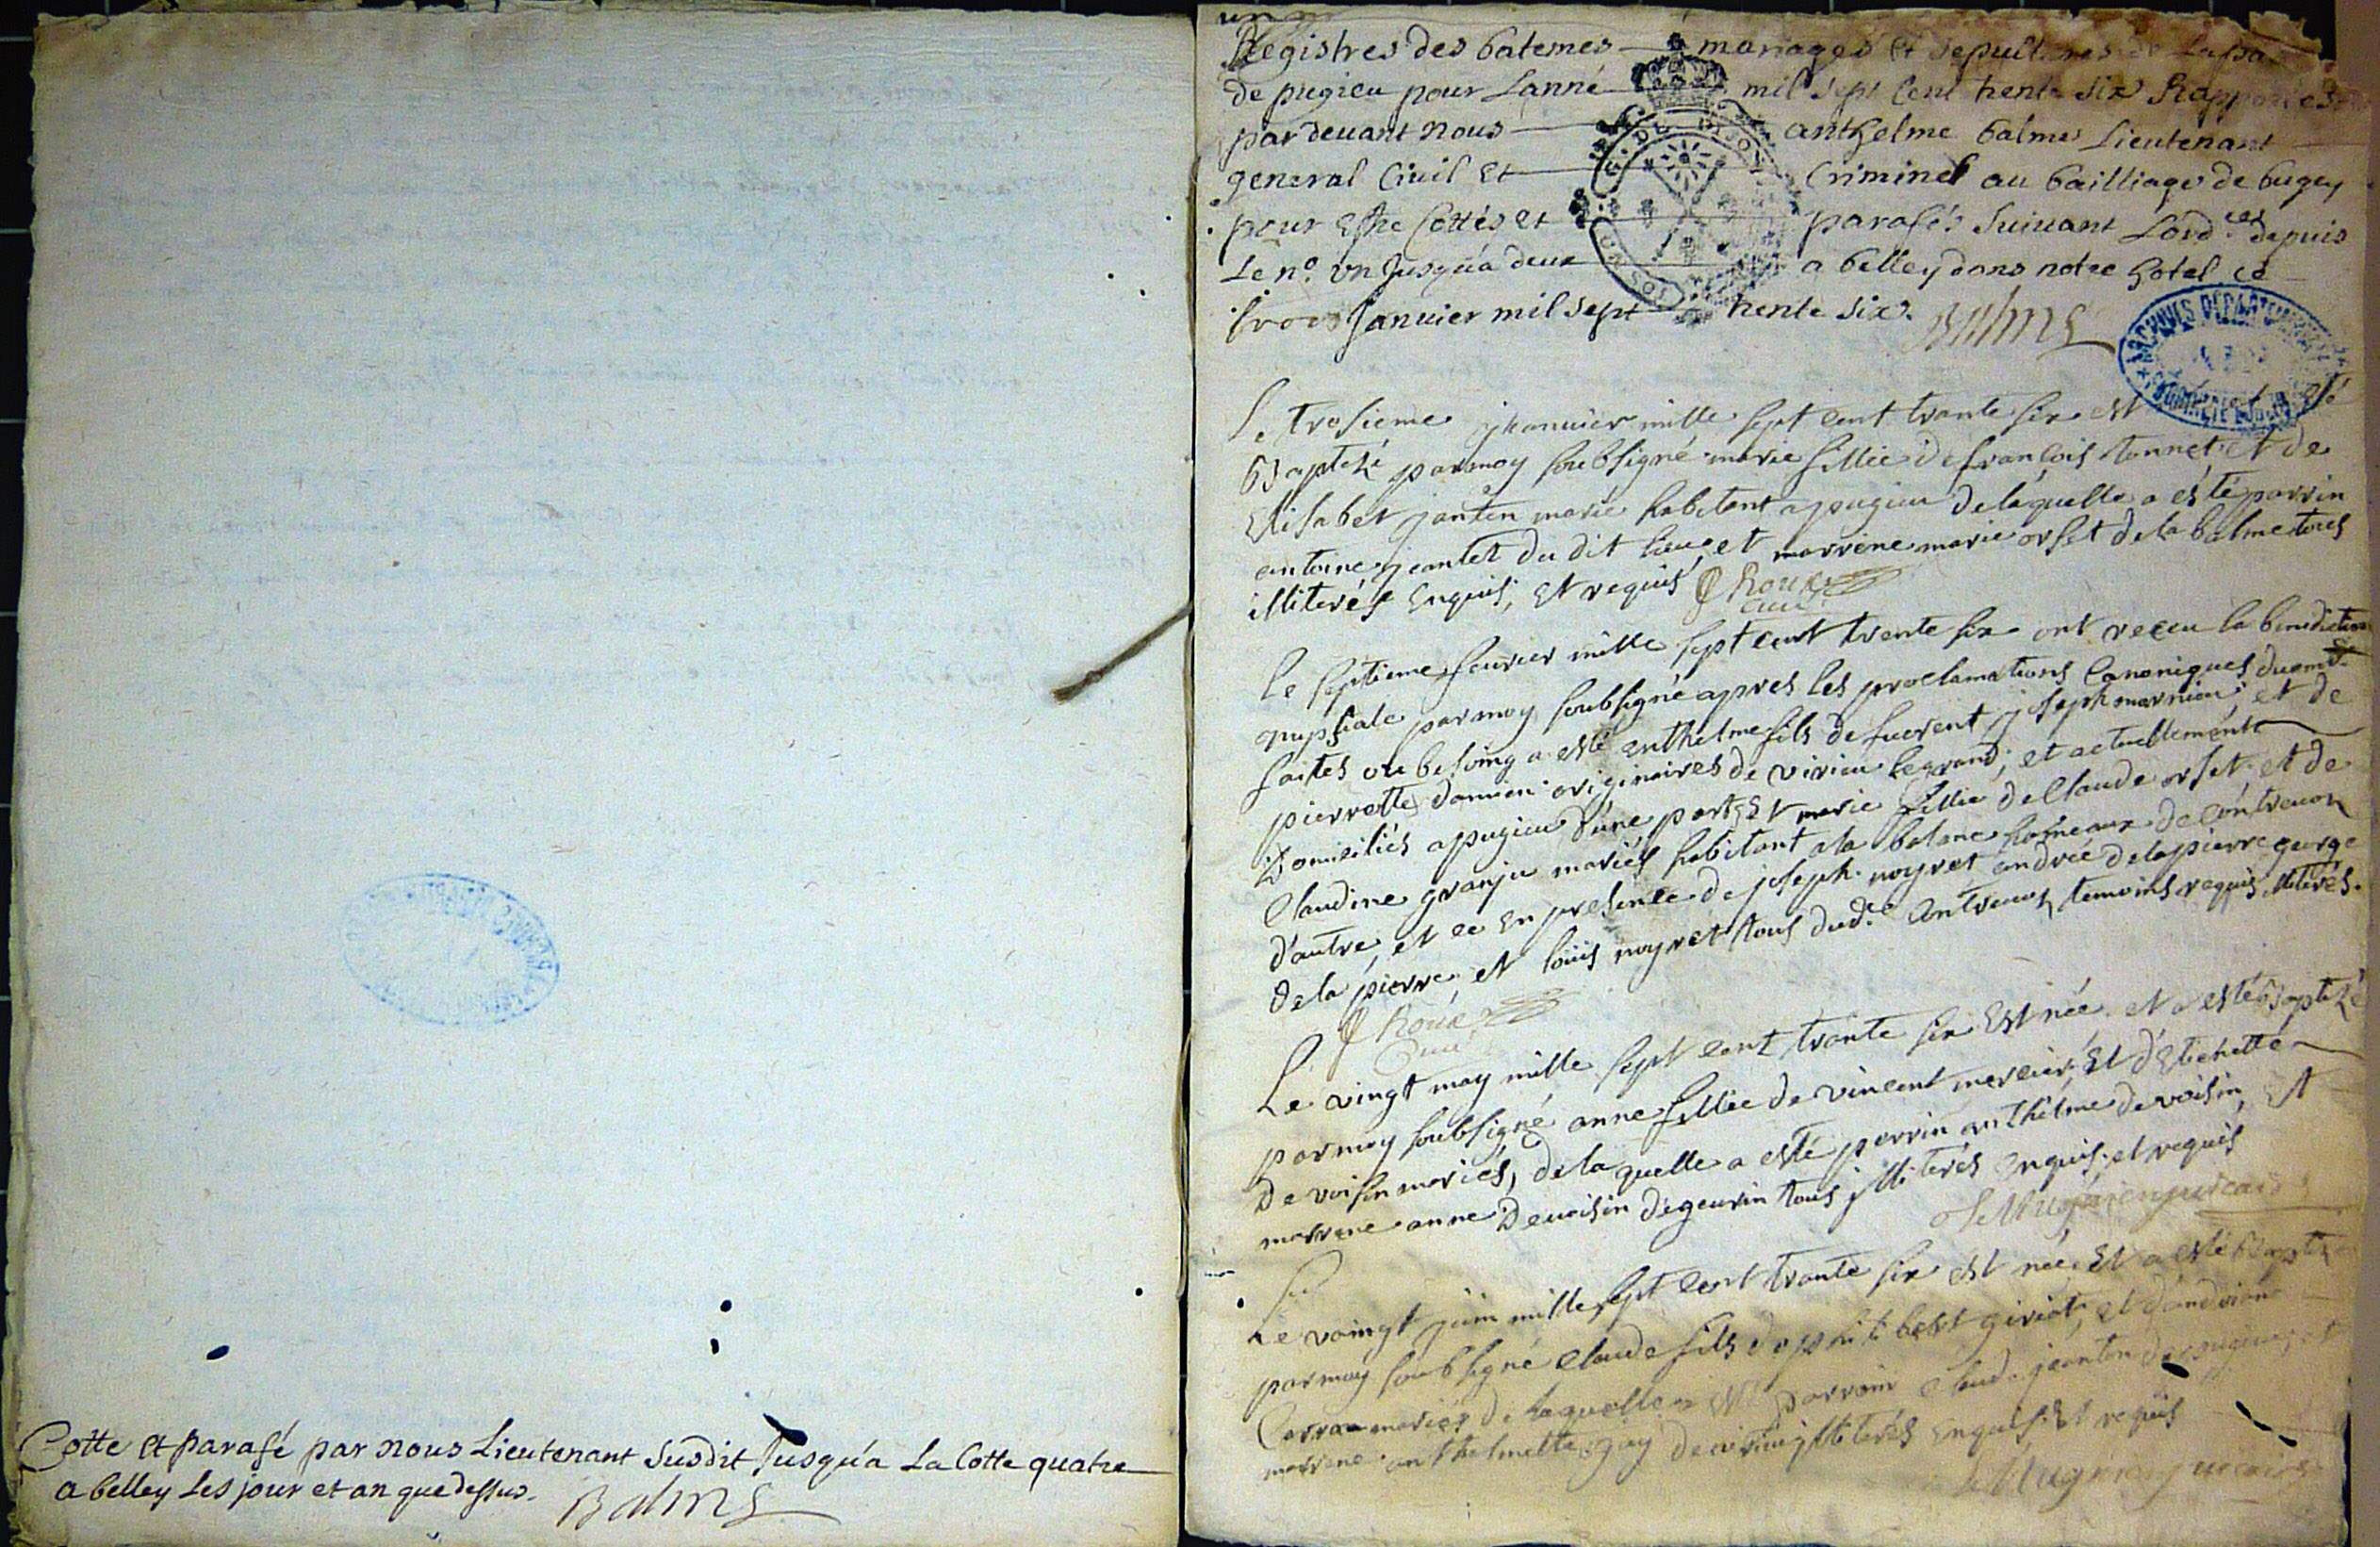 Cotte et parafé par nous Lieutenant Susdit Jusqu'a La Cotte quatre
a belley Les jour et an que dessus. Balme
un
Registres des batemes mariages et sepultures de La
de pugieu pour Lanné mil sept Cent trente six Rapportés
par devant nous anthelme balme Lieutenant
general Civil et Criminel au bailliage de bugey
pour Estre Cottés et parafés Suivant Lord.ces depuis
Le n.o un Jusqu'a deux a belley dans notre hotel ce
trois Janvier mil sept trente six. Balme
ARCHIVES DEPART
Le trosieme jeanvier mille sept cent trante six est
Baptizé par moy soubsigné marie fillie de françois tonnet et de
Elisabet jantin marié habitant a pugieu de laquelle a esté parrin
antoine jeantet du dit lieu, et marrene marie orset de la balme tous
illiterés Enquis, Et requis Roux
curé
Le septieme feuvrier mille sept cent trente six ont receu la benediction
nupsiale par moy soubsigné apres les proclamations Canoniques duem.t
faites ou besoing a esté anthelme fils de fuerent joseph marnieu; et de
pierrette damien originaires de virieu legrand; et actuellement
Domiciliés a pugieu d'une part Et marie fillie de Claude orset et de
Claudine granju mariés habitant a la balme hameaux de Contrevoz
d'autre, et ce En presence de joseph noyret andrée delapierre george
de la pierre et loüis noyret tous dud.t Contrevoz temoins requis illiterés.
Roux
Curé
Le vingt may mille sept cent trante six Est née et a esté Baptizé
par moy soubsigné anne fillie de vincent mercier Et d'Etiehette
De voisin mariés, de la quelle a esté parrin anthelme de voisin Et
marrene anne Devoisin d'egeurin tous illiterés enquis et requis
Le vaingt juin mille sept cent trante six est née Et a esté Baptizé
par moy soubsigné Claude fils de giriot, et d'andriane
Carra mariés de laquelle a esté parroin Claude jeanton de pugieu, et
marrene anthelmette illiterés Enquis Et requis